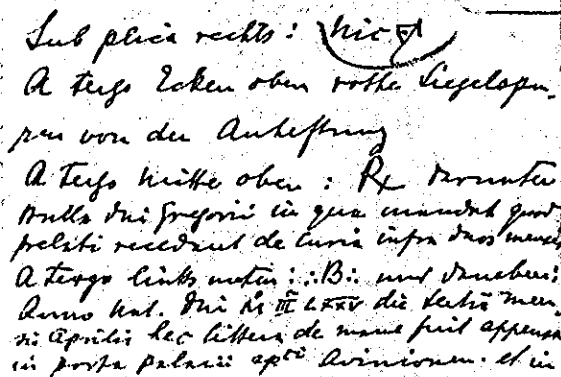 Sub plica rechts: Nic
A tergo Ecken oben rothe Siegelspu-
ren von der Anheftung
A tergo mitte oben: Rx darunter
Bulla dni Gregorii in qua mandat quod
prelati recedant de curia infra duos menses
A tergo links unten: :B: und daneben:
Anno Nat. dni M III LXXV die tertia men-
sis Aprilis hec littera de mane fuit appensa
in porta palacii apci Avinionen. et in